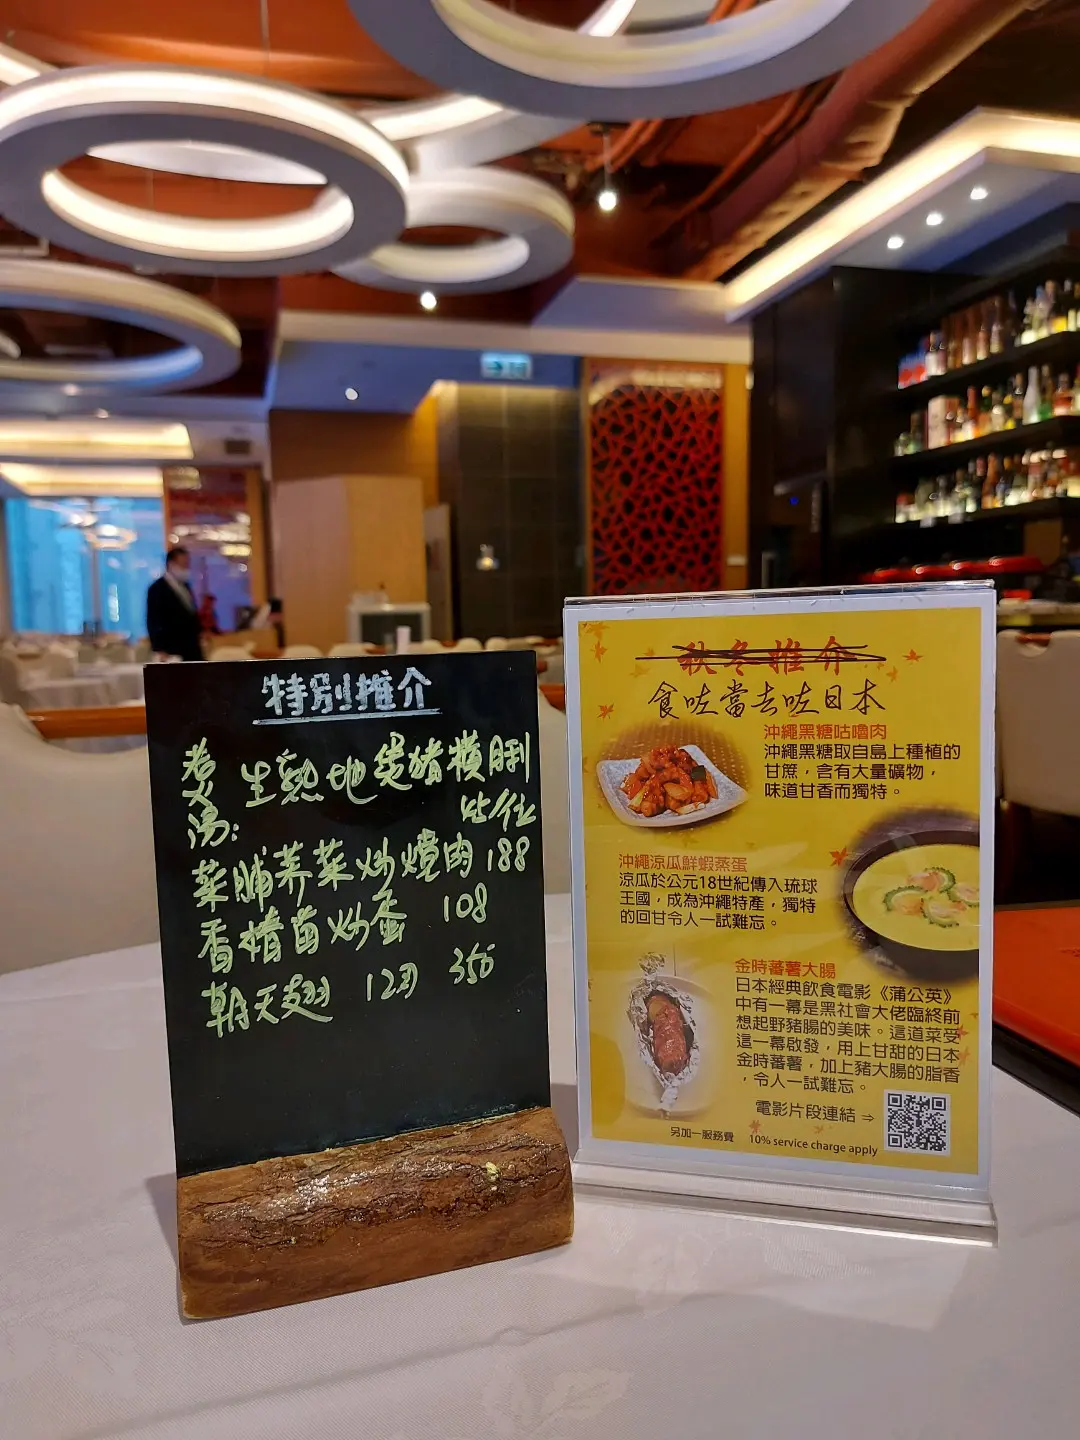 特別推介
煲湯: 生熟地煲豬橫脷
菜脯荞菜炒燒肉 188
香豬菌炒蛋 108
朝天翅 12刃 350
秋冬推介
食咗當去咗日本
沖繩黑糖咕嚕肉
沖繩黑糖取自島上種植的
甘蔗，含有大量礦物，
味道甘香而獨特。
沖繩涼瓜鮮蝦蒸蛋
涼瓜於公元18世紀傳入琉球
王國，成為沖繩特產，獨特
的回甘令人一試難忘。
金時蕃薯大腸
日本經典飲食電影《蒲公英》
中有一幕是黑社會大佬臨終前
想起野豬腸的美味。這道菜受
這一幕啟發，用上甘甜的日本
金時蕃薯，加上豬大腸的脂香
，令人一試難忘。
電影片段連結 ⇒
另加一服務費 10% service charge apply